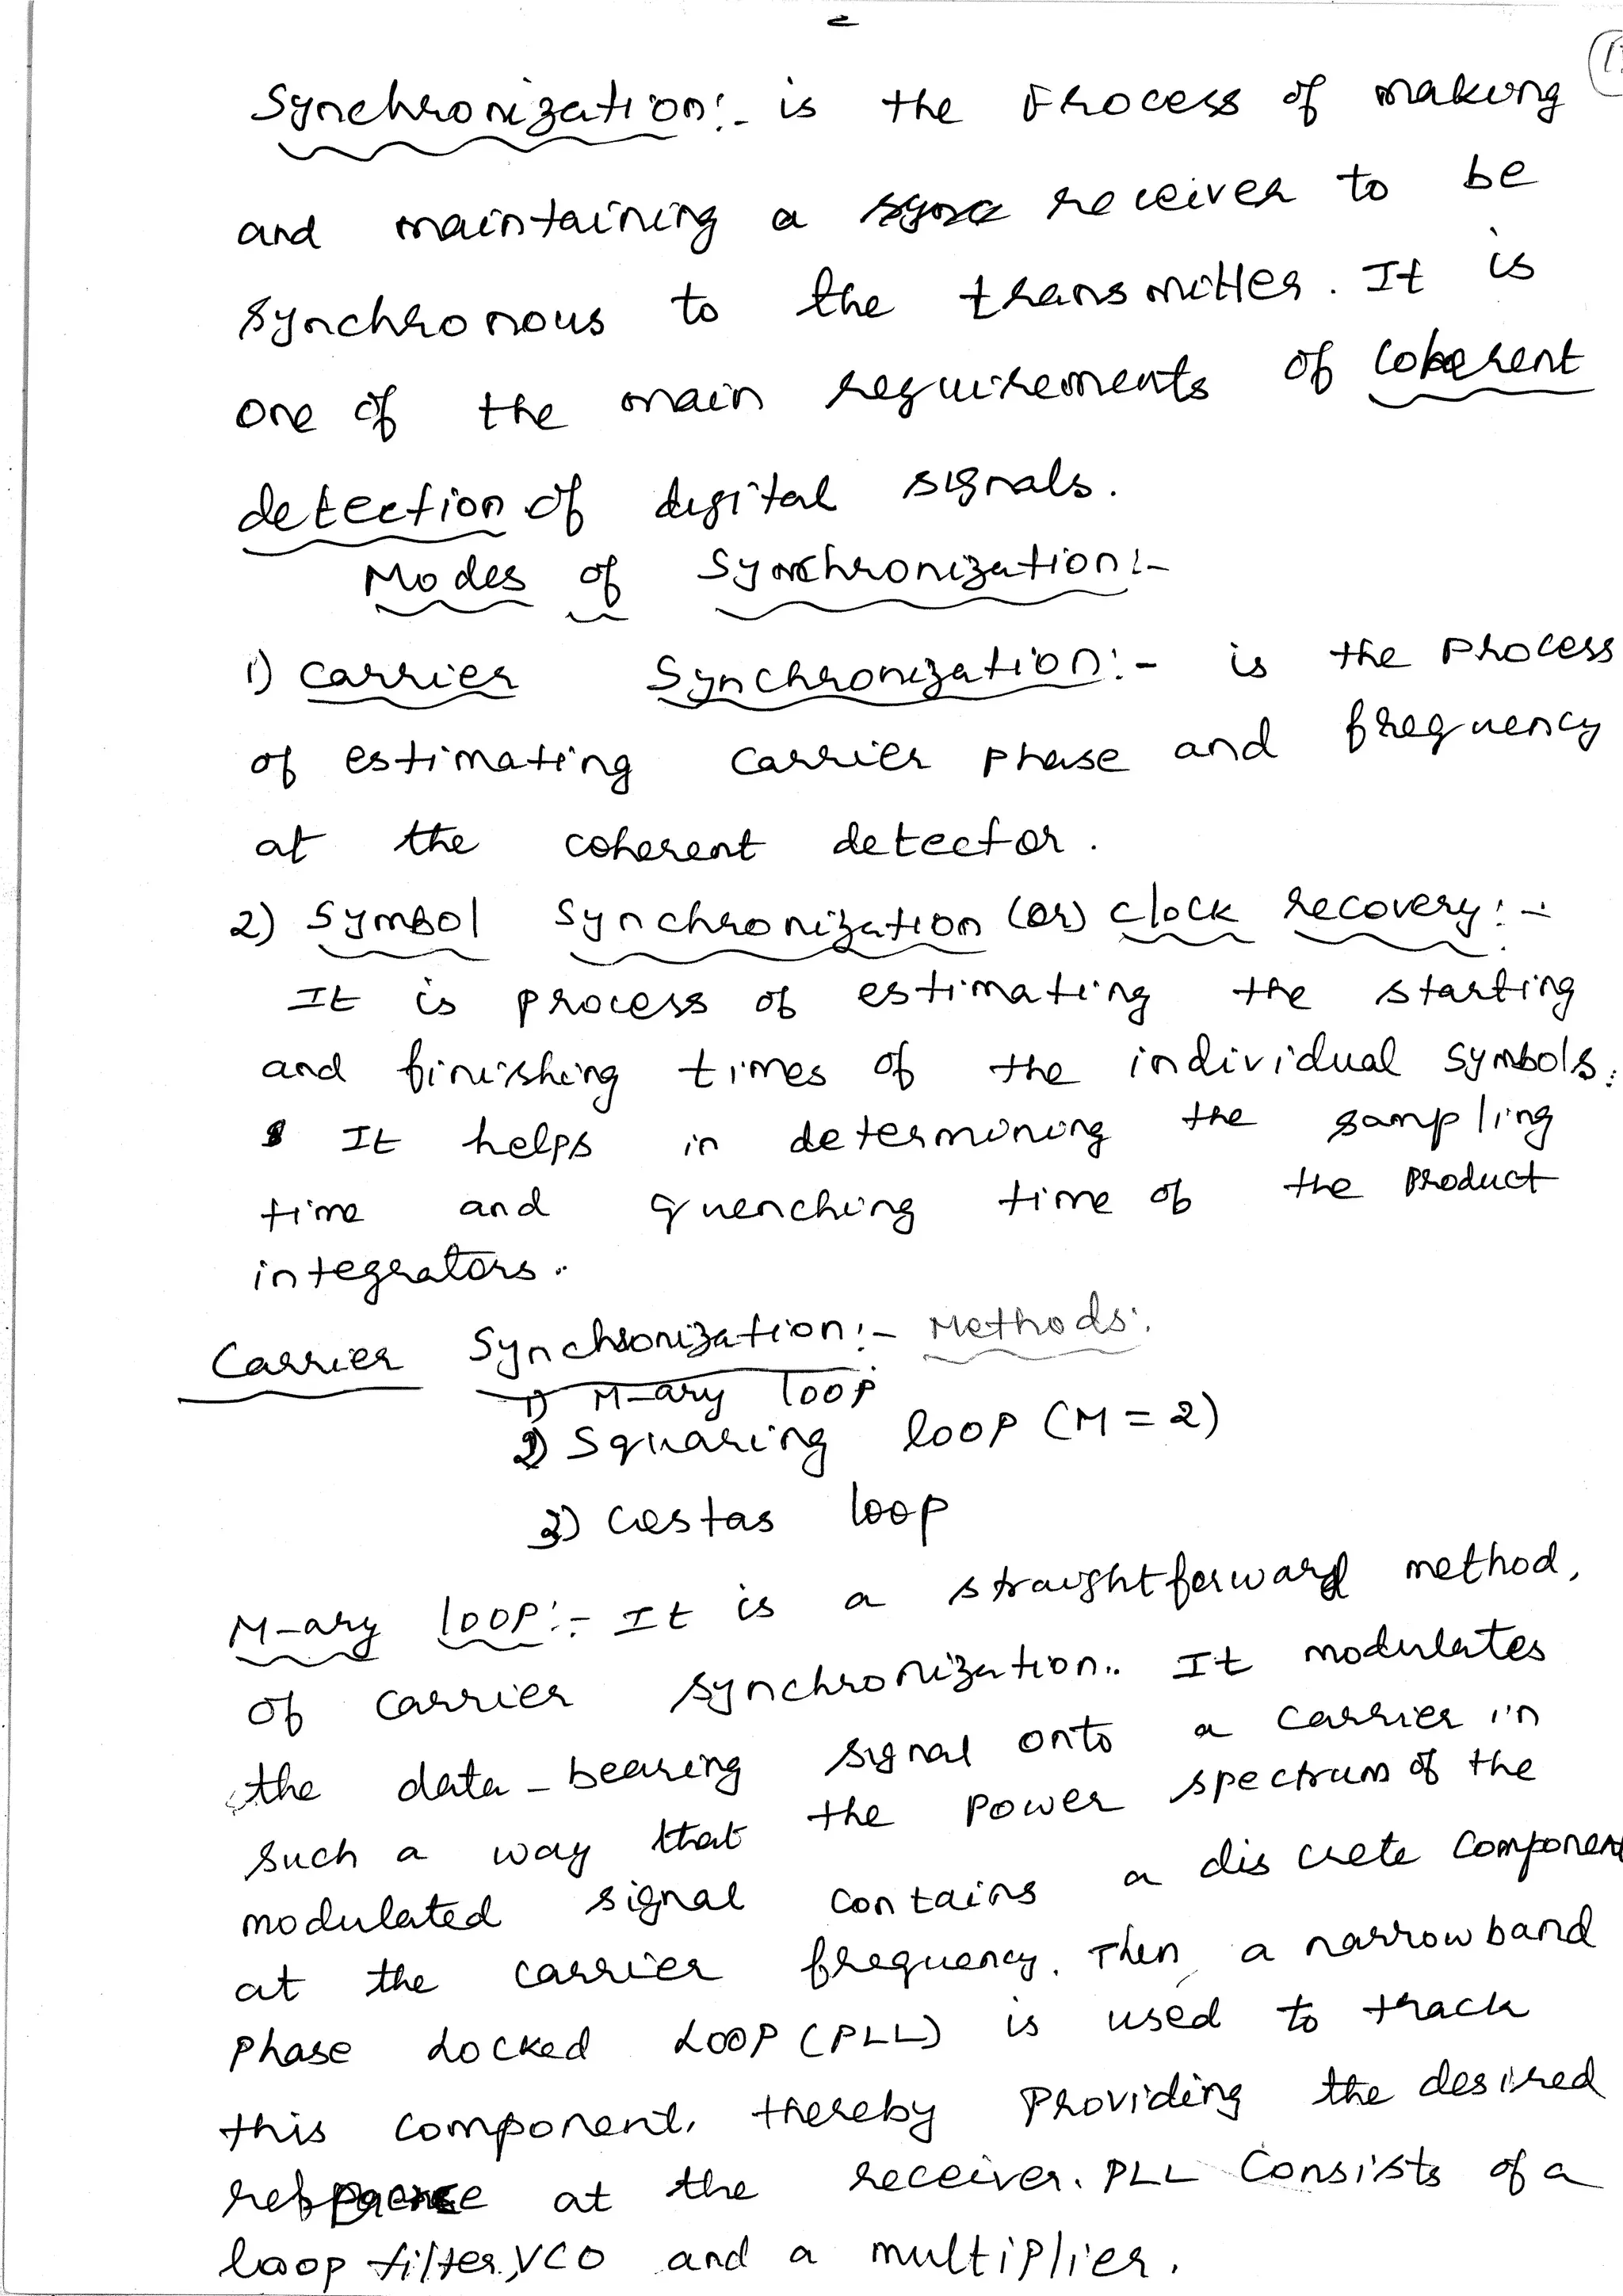 Synchronization:- is the Process of making
and maintaining a receiver to be
synchronous to the transmitter. It is
one of the main requirements of Coherent
detection of digital signals.
Modes of Synchronization:-
1) Carrier Synchronization:- is the Process
of estimating carrier phase and frequency
at the coherent detector.
2) Symbol Synchronization (or) clock recovery:-
It is process of estimating the starting
and finishing times of the individual symbols.
It helps in determining the sampling
time and quenching time of the Product
integrators.
Carrier Synchronization:- Methods:
1) M-ary loop
2) Squaring loop (M=2)
3) Costas loop
M-ary loop:- It is a straightforward method,
of carrier synchronization. It modulates
the data-bearing signal onto a carrier in
such a way that the power spectrum of the
modulated signal contains a discrete component
at the carrier frequency. Then a narrowband
Phase Locked Loop (PLL) is used to track
this component, thereby Providing the desired
at the receiver. PLL Consists of a
loop filter, VCO and a multiplier.